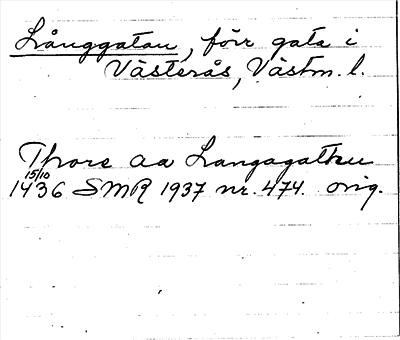 Långgatan, förr gata i
Västerås, Västm. l.
Thore aa Langagathu
15/10
1436 SMR 1937 nr. 474. orig.